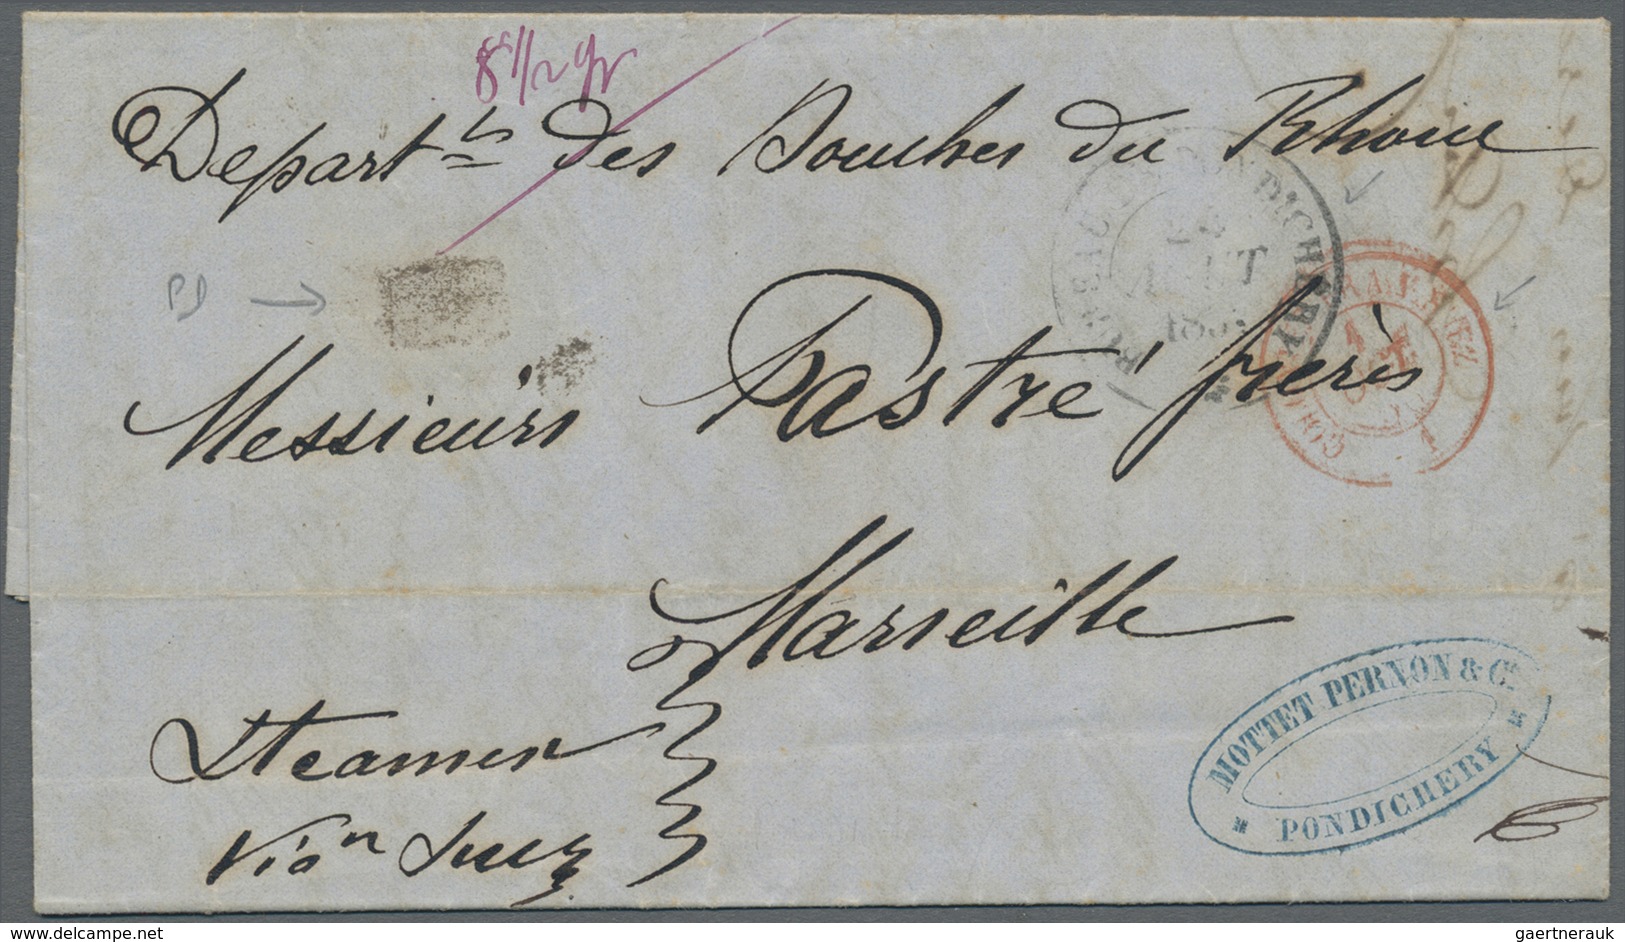 8 1/2 gr
Depart.ts des Bouches du Rhone
PONDICHERY
24
AOUT
PD
Messieurs Pastré frères
Marseille
Steamer
via Suez
MOTTET PERNON & Cie
PONDICHERY
delcampe.net
gaertnerauk